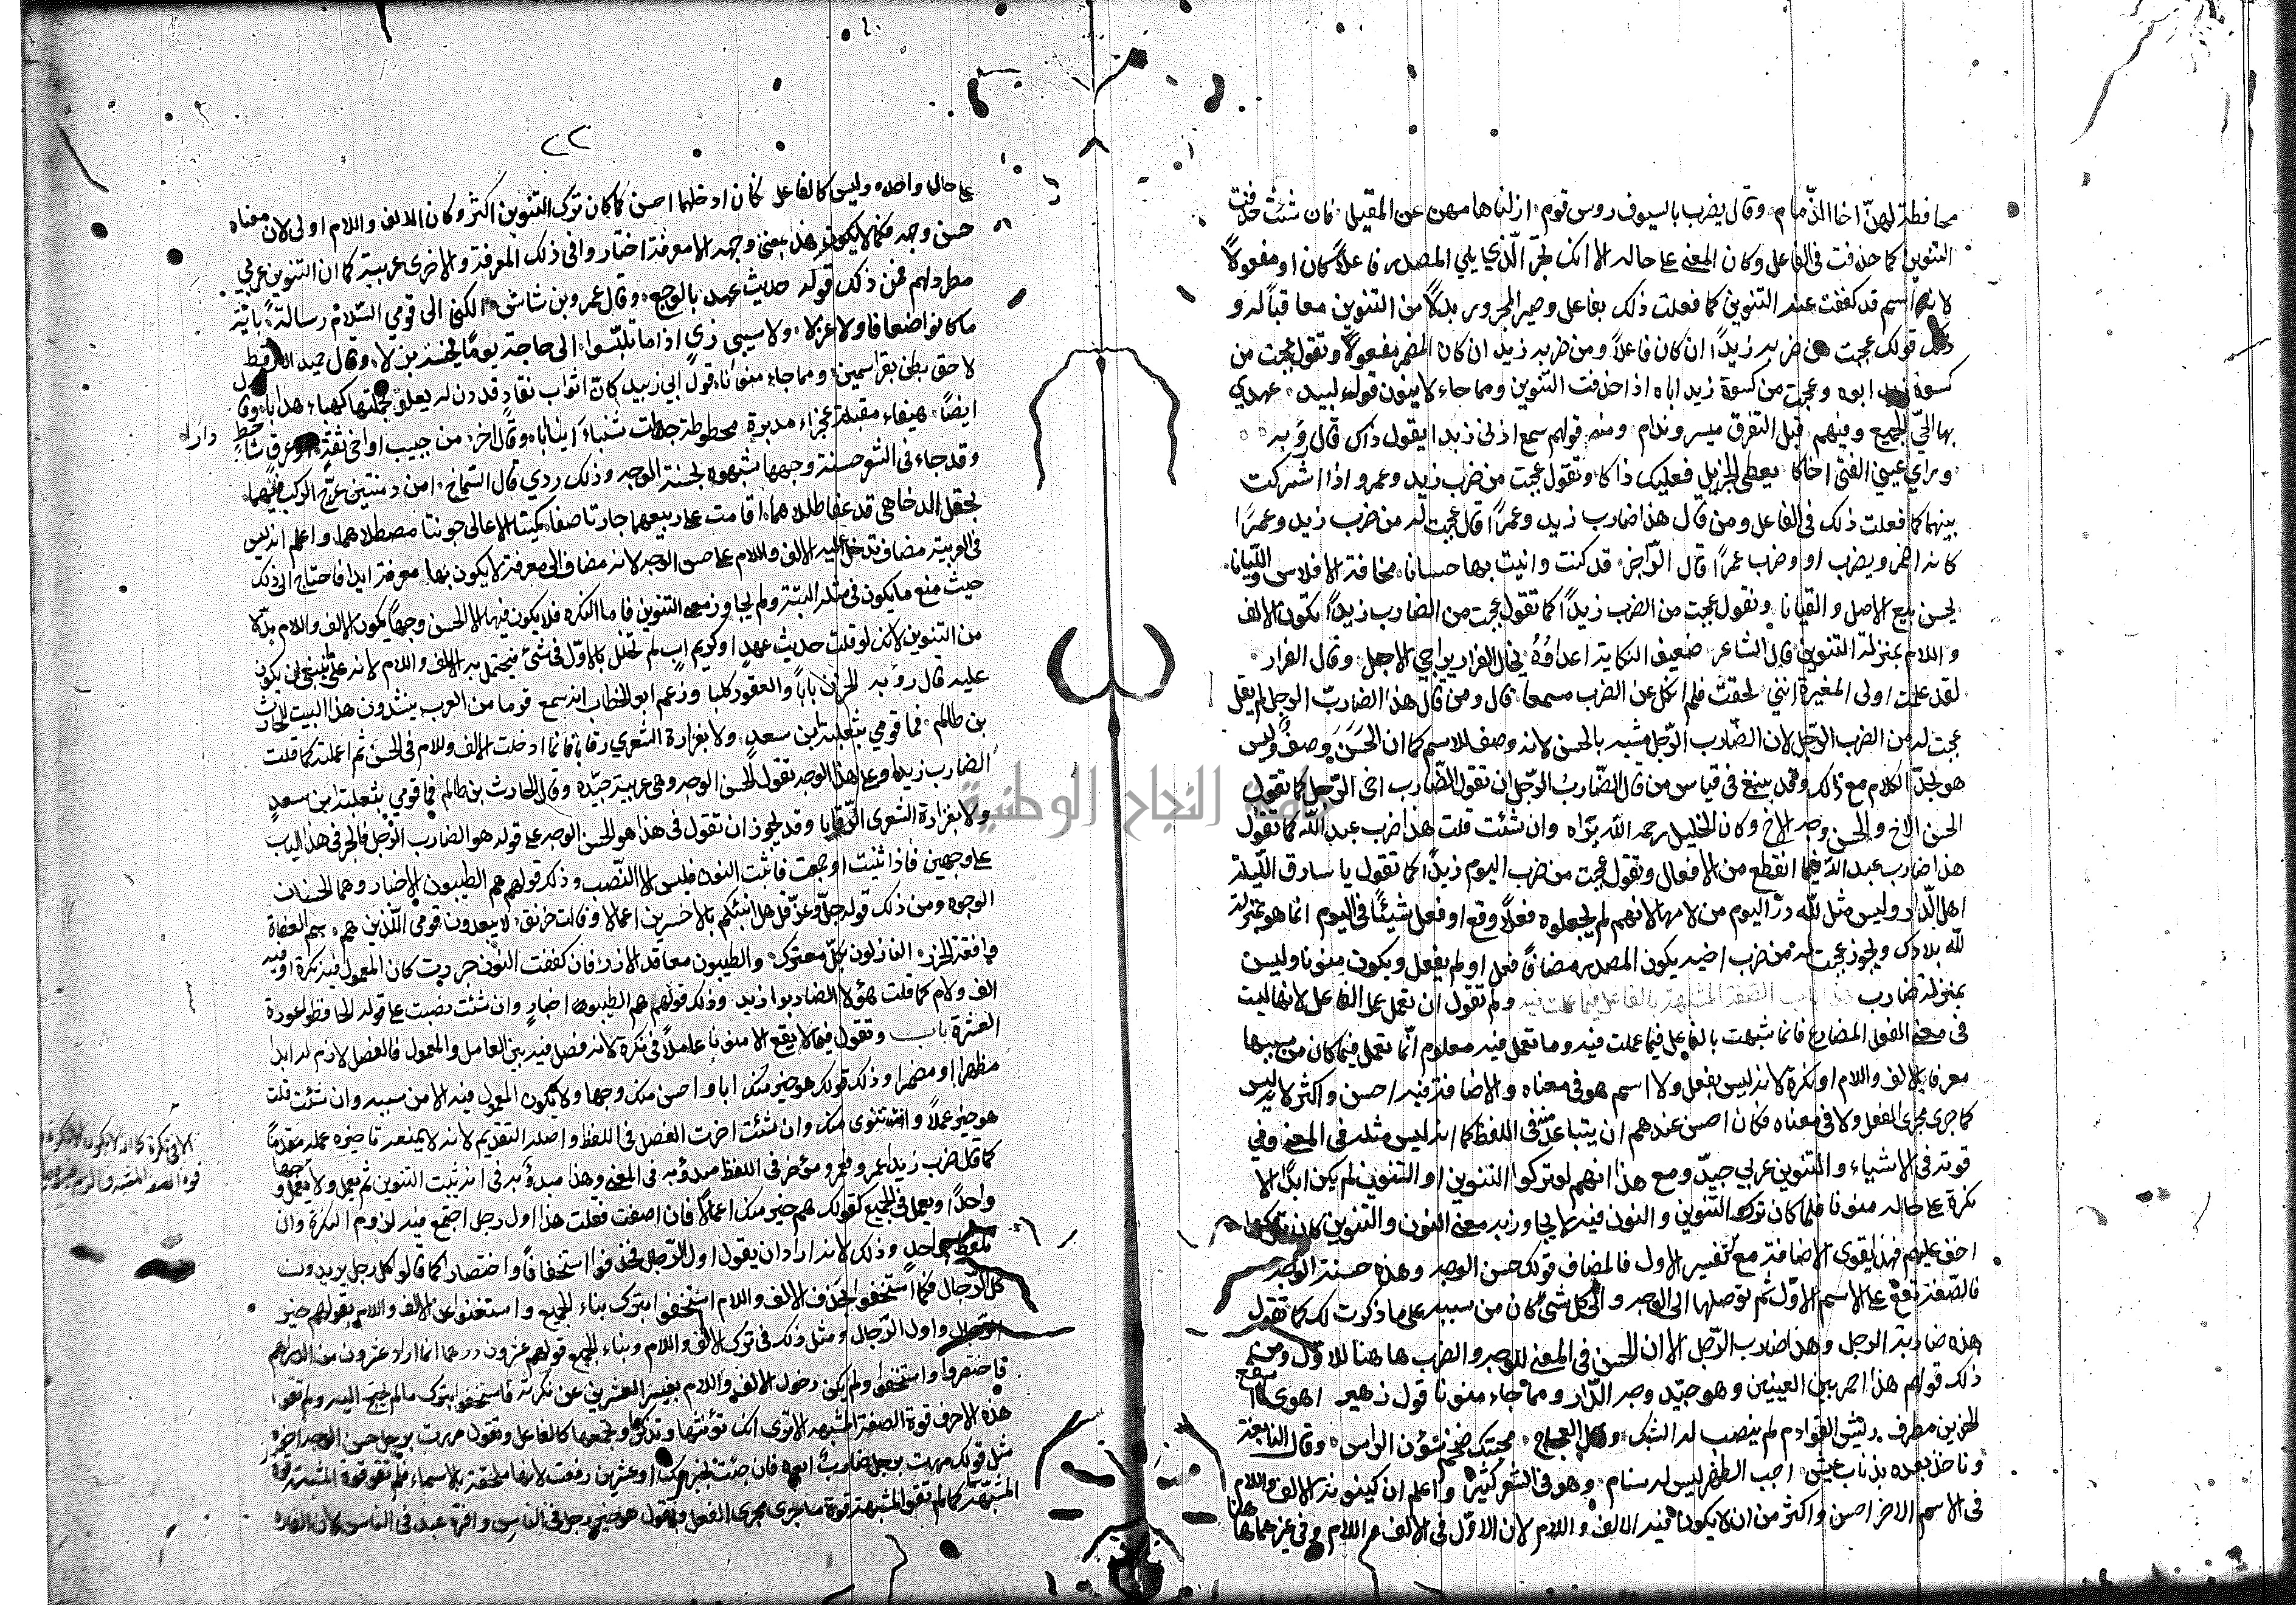 محافظة لهن اخا الذمام وقال يضرب بالسيوف روس قوم ازلنا هامهن عن المقيل فان شئت حذفت
التنوين كما حذفت في الفاعل وكان المعنى على حاله الا انك تجر الذي يلي المصدر فاعلا كان او مفعولا
لانه اسم قد كففت عنه التنوين كما فعلت ذلك بفاعل وصير المجرور بدلا من التنوين معاقبا له و
ذلك قولك عجبت من ضربه زيدا ان كان فاعلا ومن ضربه زيد ان كان المضمر مفعولا وتقول عجبت من
كسوة زيد ابوه وعجبت من كسوة زيد اباه اذا حذفت التنوين ومما جاء لا ينون قول لبيد عهدي
بها الحي الجميع وفيهم قبل التفرق ميسر وندام ومنه قولهم سمع اذني زيدا يقول ذاك قال رؤبه
وراي عيني الفتى اخاكا يعطي الجزيل فعليك ذاكا وتقول عجبت من ضرب زيد وعمرو اذا اشركت
بينهما كما فعلت ذلك في الفاعل ومن قال هذا ضارب زيد وعمرا قال عجبت له من ضرب زيد وعمرا
كانه اضمر ويضرب او وضرب عمرا قال الراجز قد كنت داينت بها حسانا مخافة الافلاس والليانا
يحسن بيع الاصل والقيانا وتقول عجبت من الضرب زيدا كما تقول عجبت من الضارب زيدا يكون الالف
واللام بمنزلة التنوين قال الشاعر ضعيف النكاية اعداءه يخال الفرار يراخي الاجل وقال المرار
لقد علمت اولى المغيرة انني لحقت فلم انكل عن الضرب مسمعا قال ومن قال هذا الضارب الرجل لم يقل
عجبت له من الضرب الرجل لان الضارب الرجل مشبه بالحسن لانه وصف للاسم كما ان الحسن وصف وليس
هو بحد الكلام مع ذلك وقد ينبغي في قياس من قال الضارب الرجل ان تقول الضارب اخي الرجل كما تقول
الحسن الاخ والحسن وجه الاخ وكان الخليل رحمه الله يراه وان شئت قلت هذا ضرب عبد الله كما تقول
هذا ضارب عبد الله فيما انقطع من الافعال وتقول عجبت من ضرب اليوم زيدا كما تقول يا سارق الليلة
اهل الدار وليس مثل لله در اليوم من لامها لانهم لم يجعلوه فعلا وقع او فعل شيئا في اليوم انما هو بمنزلة
لله بلادك ويجوز عجبت له من ضرب اخيه يكون المصدر مضافا فعل او لم يفعل ويكون منونا وليس
بمنزلة ضارب هذا باب الصفة المشبهة بالفاعل فيما عملت فيه ولم تقو ان تعمل عمل الفاعل لانها ليست
في معنى الفعل المضارع فانما شبهت بالفاعل فيما عملت فيه وما تعمل فيه معلوم انما تعمل فيما كان من سببها
معرفا بالالف واللام او نكرة لانه ليس بفعل ولا اسم هو في معناه والاضافة فيه احسن واكثر لانه ليس
كما جرى مجرى الفعل ولا في معناه فكان احسن عندهم ان يتباعد منه في اللفظ كما انه ليس مثله في المعنى وفي
قوته في الاشياء والتنوين عربي جيد ومع هذا انهم لو تركوا التنوين او النون لم يكن ابدا الا
نكرة على حاله منونا فلما كان ترك التنوين والنون فيه لا يجاوز به معنى النون والتنوين كان تركهما
اخف عليهم فهذا يقوي الاضافة مع تفسير الاول فالمضاف قولك حسن الوجه وهذه حسنة الوجه
فالصفة تقع على الاسم الاول ثم توصلها الى الوجه والى كل شئ كان من سببه على ما ذكرت لك كما تقول
هذه ضاربة الرجل وهذا ضارب الرجل الا ان الحسن في المعنى للوجه والضرب هاهنا للاول ومن
ذلك قولهم هذا احمر بين العينين وهو جيد وجه الدار ومما جاء منونا قول زهير اهوى لها اسفع
الخدين مطرف ريش القوادم لم ينصب له الشبك وقال العجاج محتبك ضخم شؤن الراس وقال النابغة
وناخذ بعده بذناب عيش اجب الظهر ليس له سنام وهو في الشعر كثير واعلم ان كينونة الالف واللام
في الاسم الاخر احسن واكثر من ان لا يكون فيه الالف واللام لان الاول في الالف واللام وفي غيرهما هاهنا
٢٢
على حال واحده وليس كالفاعل فكان ادخالهما احسن كما كان ترك التنوين اكثر وكان الالف واللام اولى لان معناه
حسن وجهه فكما لا يكون هذا بمعنى وجهه الا معرفة اختار وا في ذلك المعرفة والاخرى عربية كما ان التنوين عربي
مطرد لهم فمن ذلك قوله حديث عهد بالوجع وقال عمرو بن شاش الكني الى قومي السلام رسالة باية
ما كانوا ضعافا ولا عزلا ولا سيئي زي اذا ما تلبسوا الى حاجة يوما مخيسة بزلا وقال حميد الارقط
لاحق بطن بقرا سمين ومما جاء منونا قول ابي زبيد كان اثواب نقاد قددن له يعلو بخملتها كهباء هدابا وقال
ايضا هيفاء مقبلة عجزاء مدبرة محطوطة جدلت شنباء انيابا وقال اخر من حبيب او اخي ثقة او عدو شاحط دارا
وقد جاء في الشعر حسنة وجهها شبهوه بحسنة الوجه وذلك ردي قال الشماخ امن دمنتين عرج الركب فيهما
بحقل الرخامى قد عفا طللاهما اقامت على ربعيهما جارتا صفا كميتا الاعالي جونتا مصطلاهما واعلم انه ليس
في العربية مضاف تدخل عليه الالف واللام على حسن الوجه لانه مضاف الى معرفة لا يكون بها معرفة ابدا فاحتاج الى ذلك
حيث منع ما يكون في مثله البتة ولم يجاوز معنى التنوين فاما النكره فلا يكون فيها الا الحسن وجها يكون الالف واللام بدلا
من التنوين لانك لو قلت حديث عهد او كريم اب لم تخلل بالاول في شئ فيحتمل به الالف واللام لانه على ما ينبغي ان يكون
عليه قال رؤبه الحزن بابا والعقور كلبا وزعم ابو الخطاب انه سمع قوما من العرب ينشدون هذا البيت للحارث
بن ظالم فما قومي بثعلبة ابن سعد ولا بفزارة الشعري رقابا فانما ادخلت الالف واللام في الحسن ثم اعملته كما قلت
الضارب زيدا وعلى هذا الوجه تقول الحسن الوجه وهي عربية جيده وقال الحارث بن ظالم فما قومي بثعلبة ابن سعد
ولا بفزارة الشعرى الرقابا وقد يجوز ان تقول في هذا هو الحسن الوجه على قوله هو الضارب الرجل فالجر في هذا الباب
على وجهين فاذا ثنيت او جمعت فاثبت النون فليس الا النصب وذلك قولهم هم الطيبون الاخبار وهما الحسنان
الوجوه ومن ذلك قوله جل وعز قل هل انبئكم بالاخسرين اعمالا وقالت خرنق لا يبعدون قومي الذين هم سم العداة
وافة الجزر النازلون بكل معترك والطيبون معاقد الازر فان كففت النون جررت كان المعمول فيه نكرة او فيه
الف ولام كما قلت هؤلاء الضاربوا زيد وذلك قولهم هم الطيبوا اخبار وان شئت نصبت على قوله الحافظوا عورة
العشيرة باب وتقول فيما لا يقع الا منونا عاملا في نكرة لانه فصل فيه بين العامل والمعمول فالفصل لازم له ابدا
مظهرا او مضمرا وذلك قولك هو خير منك ابا واحسن منك وجها ولا يكون المعمول فيه الا من سببه وان شئت قلت
هو خير عملا وانت تنوي منك وان شئت اخرت الفصل في اللفظ واصله التقديم لانه لا يمنعه تاخيره عمله مقدما
كما قال ضرب زيدا عمرو فعمرو مؤخر في اللفظ مبدؤ به في المعنى وهذا مبدؤ به في انه يثبت التنوين ثم يعمل ولا يعمل
واحدا ويعمل في الجميع كقولك هم خير منك اعمالا فان اضفت فقلت هذا اول رجل اجتمع فيه لزوم النكرة وان
تلفظ بواحد وذلك لانه اراد ان يقول اول الرجال فحذفوا استخفافا واختصارا كما قالو كل رجل يريدون
كل الرجال فكما استخفوا بحذف الالف واللام استخفوا بترك بناء الجميع واستغنوا عن الالف واللام بقولهم خير
الرجال واول الرجال ومثل ذلك في ترك الالف واللام وبناء الجمع قولهم عشرون درهما انما اراد عشرون من الدراهم
فاختصروا واستخفوا ولم يكن دخول الالف واللام بغير العشرين عن نكرته فاستخفوا بترك مالم يحتج اليه ولم تقو
هذه الاحرف قوة الصفة المشبهه الا ترى انك تؤنثها وتذكرها وتجمعها كالفاعل وتقول مررت برجل حسن الوجه اخوه
مثل قولك مررت برجل ضارب ابوه فان جئت بخير منك او عشرين رفعت لانها ملحقة بالاسماء فلم تقو قوة المشبهة
المشبهة كما لم تقو المشبهة قوة ما جرى مجرى الفعل وتقول هو خير رجل في الناس وافره عبد في الناس لان الفاره